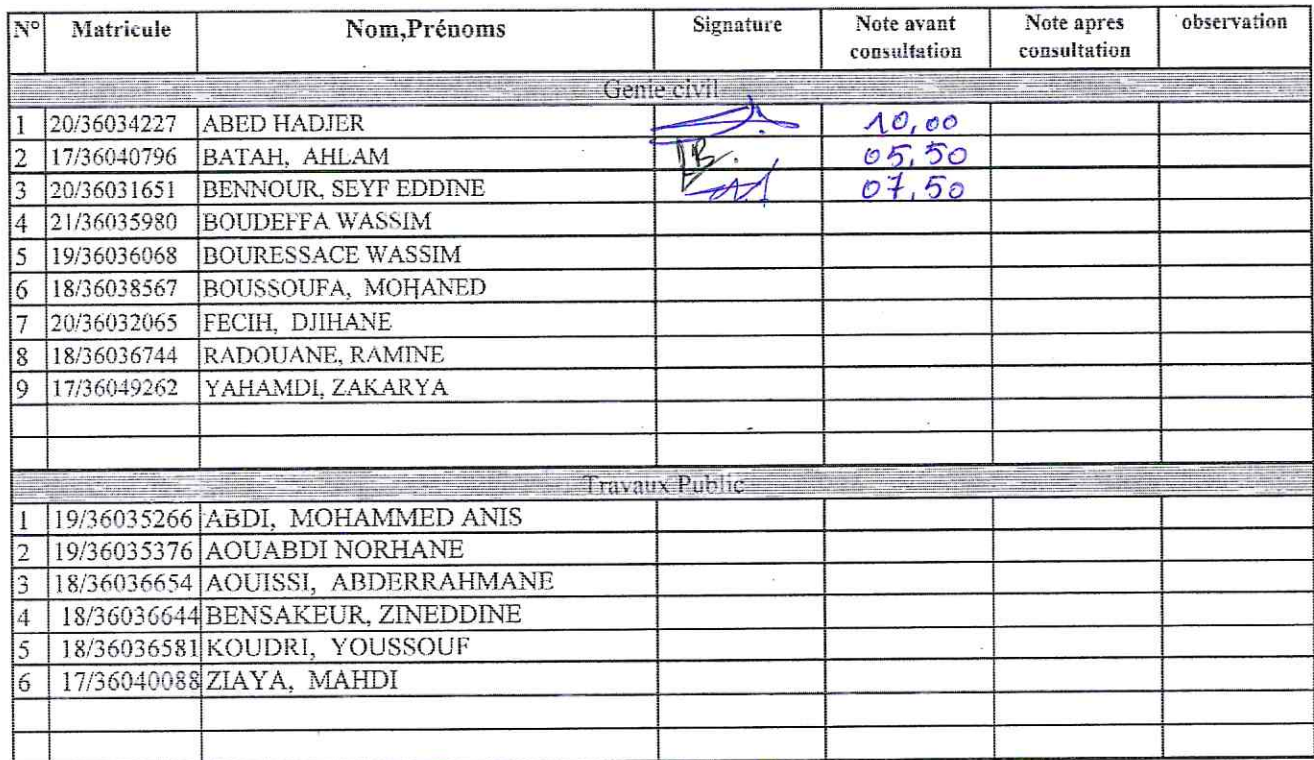 N° Matricule Nom,Prénoms Signature Note avant consultation Note apres consultation observation
Genie civil
1 20/36034227 ABED HADJER 10,00
2 17/36040796 BATAH, AHLAM 05,50
3 20/36031651 BENNOUR, SEYF EDDINE 07,50
4 21/36035980 BOUDEFFA WASSIM
5 19/36036068 BOURESSACE WASSIM
6 18/36038567 BOUSSOUFA, MOHANED
7 20/36032065 FECIH, DJIHANE
8 18/36036744 RADOUANE, RAMINE
9 17/36049262 YAHAMDI, ZAKARYA
Travaux Public
1 19/36035266 ABDI, MOHAMMED ANIS
2 19/36035376 AOUABDI NORHANE
3 18/36036654 AOUISSI, ABDERRAHMANE
4 18/36036644 BENSAKEUR, ZINEDDINE
5 18/36036581 KOUDRI, YOUSSOUF
6 17/36040088 ZIAYA, MAHDI